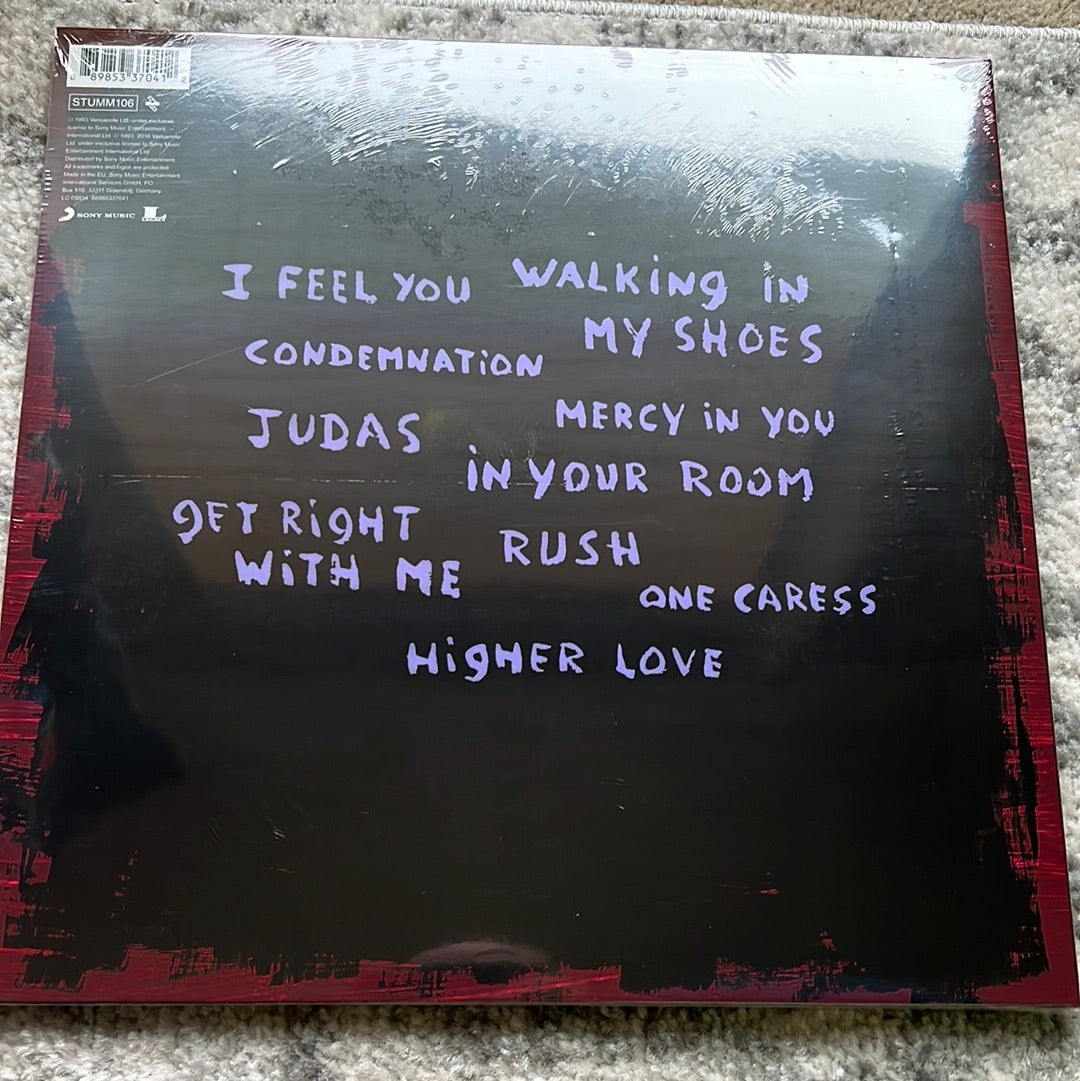 89853 37041 2
STUMM106
℗ 1993 Venusnote Ltd. under exclusive
license to Sony Music Entertainment
International Ltd. © 1993, 2016 Venusnote
Ltd. under exclusive license to Sony Music
Entertainment International Ltd.
Distributed by Sony Music Entertainment.
All trademarks and logos are protected.
Made in the EU. Sony Music Entertainment
International Services GmbH, PO
Box 510, 33311 Gütersloh, Germany.
88985337041
SONY MUSIC LEGACY
I FEEL YOU WALKiNg iN
MY SHOES
CONDEMNATiON
JUDAS MERCY iN YOU
iN YOUR ROOM
gET RigHT
WiTH ME RUSH
ONE CARESS
HigHER LOVE